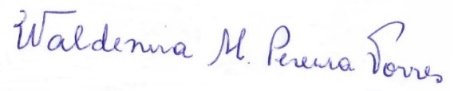 Waldenira M. Pereira Torres